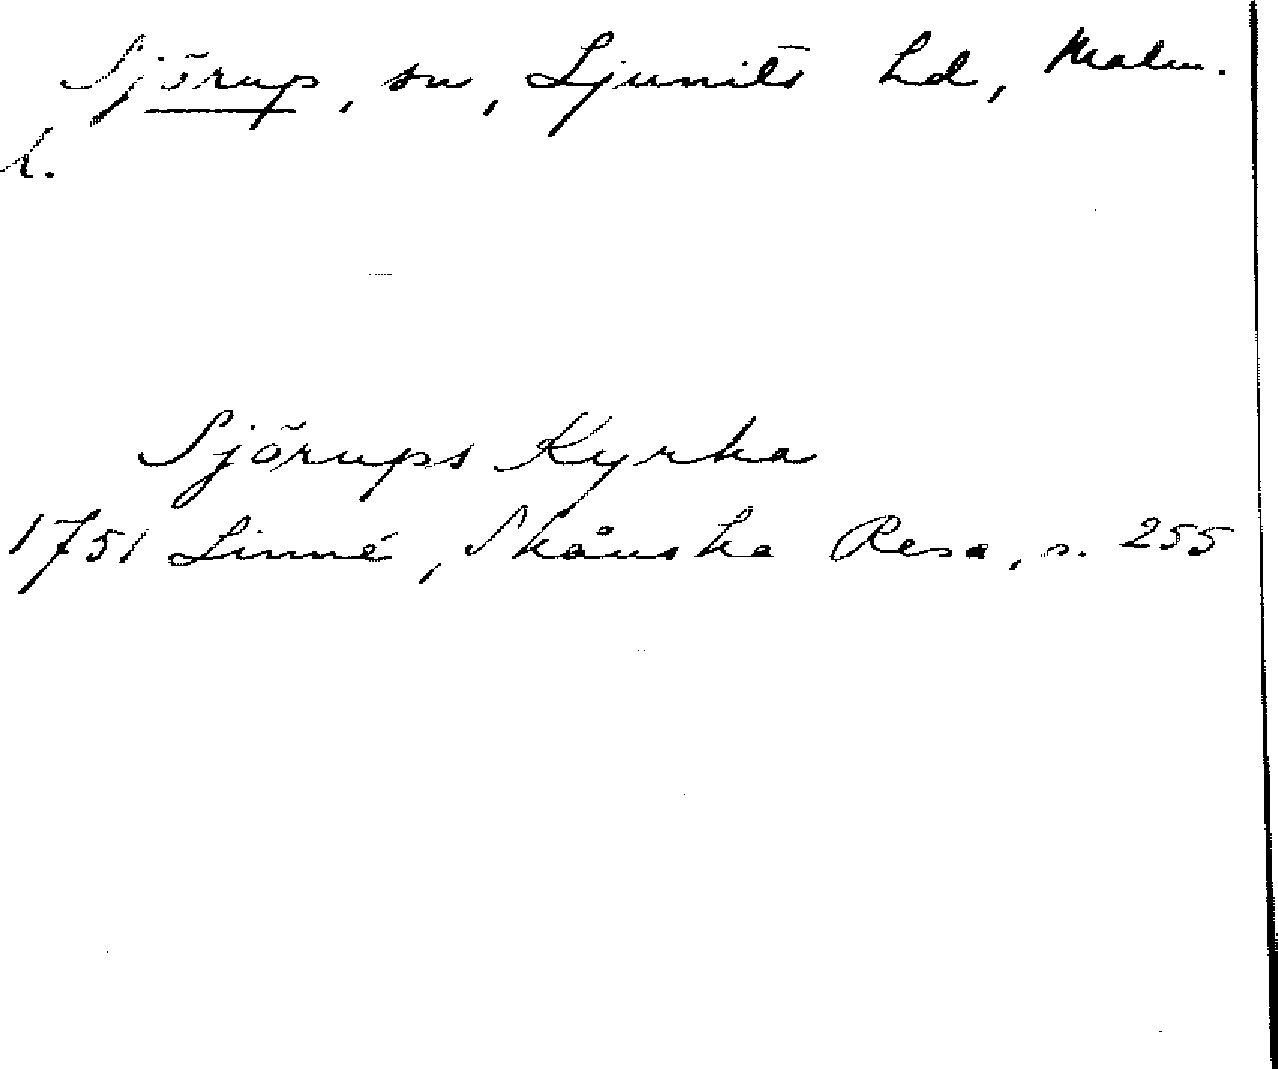 Sjörup, sn, Ljunits hd, Malm.
l.
Sjörups Kyrka
1751 Linné, Skånska Resa, s. 255